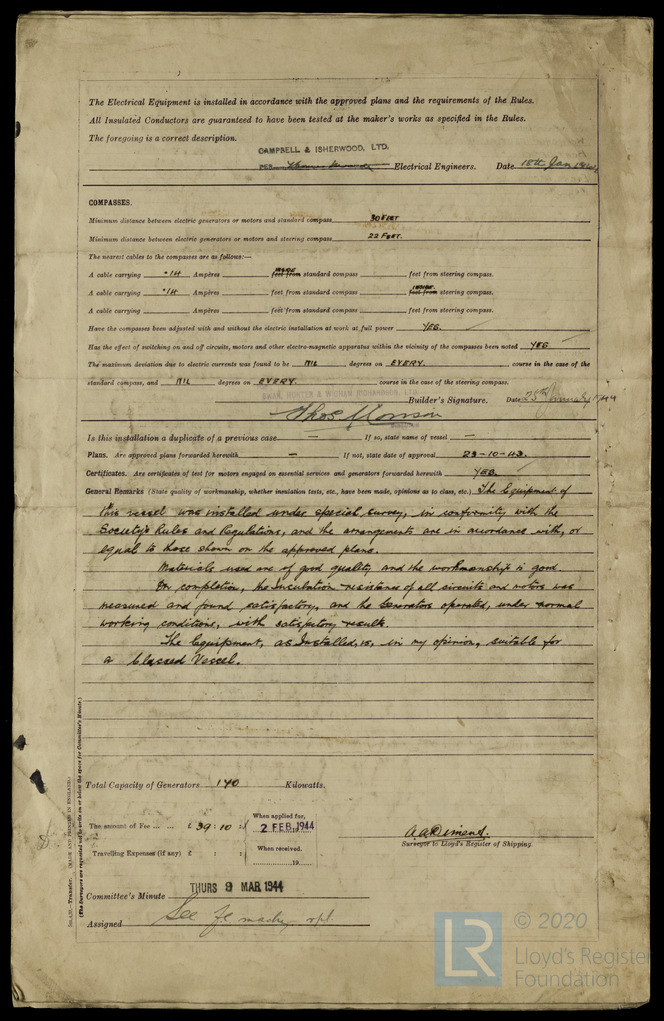 The Electrical Equipment is installed in accordance with the approved plans and the requirements of the Rules.
All Insulated Conductors are guaranteed to have been tested at the maker's works as specified in the Rules.
The foregoing is a correct description.
CAMPBELL & ISHERWOOD, LTD.
PER Electrical Engineers. Date 18th Jan 1944
COMPASSES.
Minimum distance between electric generators or motors and standard compass 30 FEET
Minimum distance between electric generators or motors and steering compass 22 FEET.
The nearest cables to the compasses are as follows:—
A cable carrying .14 Ampères INSIDE feet from standard compass feet from steering compass.
A cable carrying .14 Ampères feet from standard compass INSIDE feet from steering compass.
A cable carrying Ampères feet from standard compass feet from steering compass.
Have the compasses been adjusted with and without the electric installation at work at full power YES.
Has the effect of switching on and off circuits, motors and other electro-magnetic apparatus within the vicinity of the compasses been noted YES
The maximum deviation due to electric currents was found to be NIL degrees on EVERY. course in the case of the
standard compass, and NIL degrees on EVERY. course in the case of the steering compass.
SWAN, HUNTER & WIGHAM RICHARDSON, LTD.
Builder's Signature. Date 25th January 1944
Is this installation a duplicate of a previous case — If so, state name of vessel —
Plans. Are approved plans forwarded herewith — If not, state date of approval 29-10-43.
Certificates. Are certificates of test for motors engaged on essential services and generators forwarded herewith YES.
General Remarks (State quality of workmanship, whether insulation tests, etc., have been made, opinions as to class, etc.) The Equipment of
this vessel was installed under special survey, in conformity with the
Society's Rules and Regulations, and the arrangements are in accordance with, or
equal to those shown on the approved plans.
Materials used are of good quality and the workmanship is good.
On completion, the Insulation resistance of all circuits and motors was
measured and found satisfactory, and the Generators operated, under normal
working conditions, with satisfactory results.
The Equipment, as Installed, is, in my opinion, suitable for
a Classed Vessel.
Total Capacity of Generators 140 Kilowatts.
The amount of Fee ... ... £ 39 : 10 : When applied for, 2 FEB 1944
Surveyor to Lloyd's Register of Shipping.
Travelling Expenses (if any) £ : : When received, 19
Committee's Minute THURS 9 MAR 1944
Assigned See F.E. machy rpt.
(The Surveyors are requested not to write on or below the space for Committee's Minute.)
(MADE AND PRINTED IN ENGLAND.)
LR © 2020
Lloyd's Register
Foundation